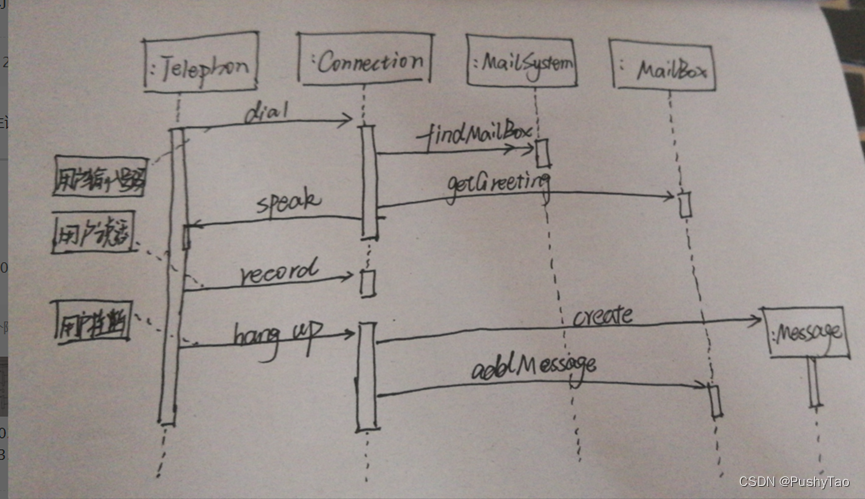 :Telephon
:Connection
:MailSystem
: MailBox
dial
findMailBox
用户输入号码
getGreeting
speak
用户读语
record
create
:Message
用户挂断
hang up
addMessage
CSDN @PushyTao